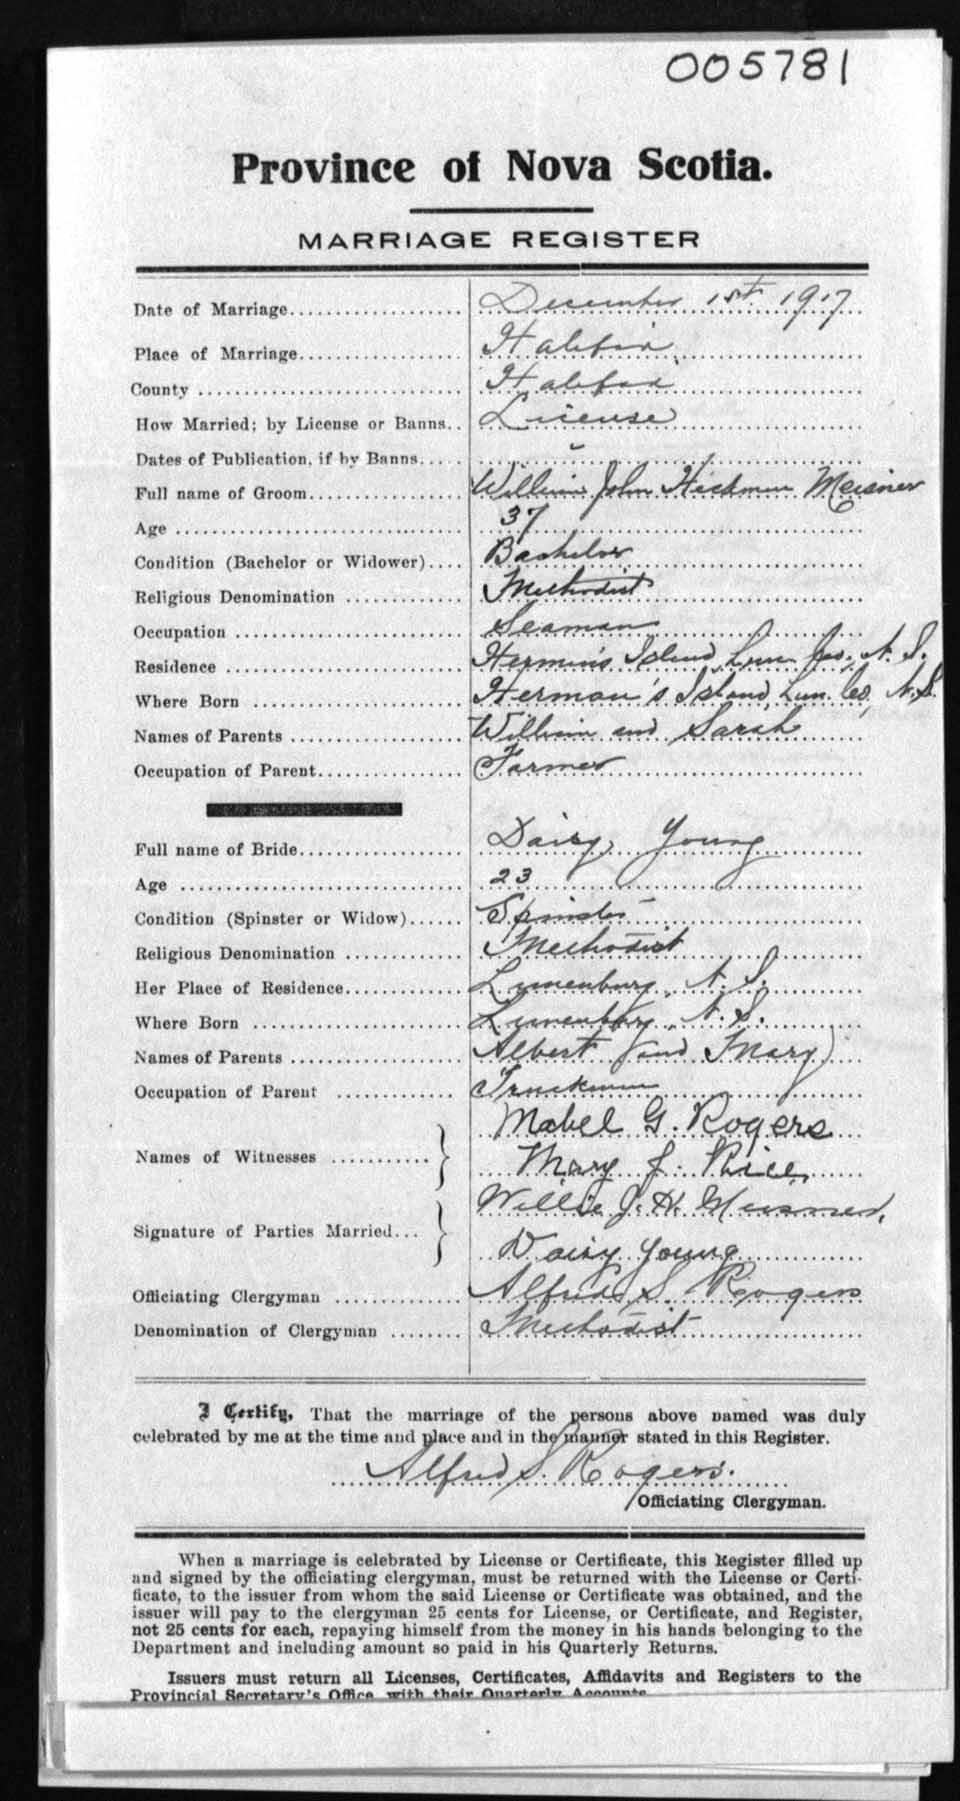 005781
Province of Nova Scotia.
MARRIAGE REGISTER
Date of Marriage.................... December 1st. 1917
Place of Marriage.................. Halifax
County ............................. Halifax
How Married; by License or Banns.. License
Dates of Publication, if by Banns..... -
Full name of Groom................. William John Hickman Meisner
Age ................................ 37
Condition (Bachelor or Widower).... Bachelor
Religious Denomination ............. Methodist
Occupation ......................... Seaman
Residence .......................... Herman's Island, Lun. Co., N. S.
Where Born ....................... Herman's Island, Lun. Co, N.S.
Names of Parents ................... William and Sarah
Occupation of Parent................ Farmer
Full name of Bride.................. Daisy Young
Age ............................... 23
Condition (Spinster or Widow)...... Spinster
Religious Denomination ............. Methodist
Her Place of Residence............. Lunenburg, N. S.
Where Born ....................... Lunenburg, N. S.
Names of Parents ................... Albert and Mary
Occupation of Parent .............. Truckman
Names of Witnesses ........... } Mabel G. Rogers
Mary J. Rice
Signature of Parties Married... } Willie J. H. Meisner,
Daisy Young
Officiating Clergyman .............. Alfred S. Rogers
Denomination of Clergyman ........ Methodist
I Certify, That the marriage of the persons above named was duly
celebrated by me at the time and place and in the manner stated in this Register.
Alfred S. Rogers.
Officiating Clergyman.
When a marriage is celebrated by License or Certificate, this Register filled up
and signed by the officiating clergyman, must be returned with the License or Certi-
ficate, to the issuer from whom the said License or Certificate was obtained, and the
issuer will pay to the clergyman 25 cents for License, or Certificate, and Register,
not 25 cents for each, repaying himself from the money in his hands belonging to the
Department and including amount so paid in his Quarterly Returns.
Issuers must return all Licenses, Certificates, Affidavits and Registers to the
Provincial Secretary's Office, with their Quarterly Accounts.